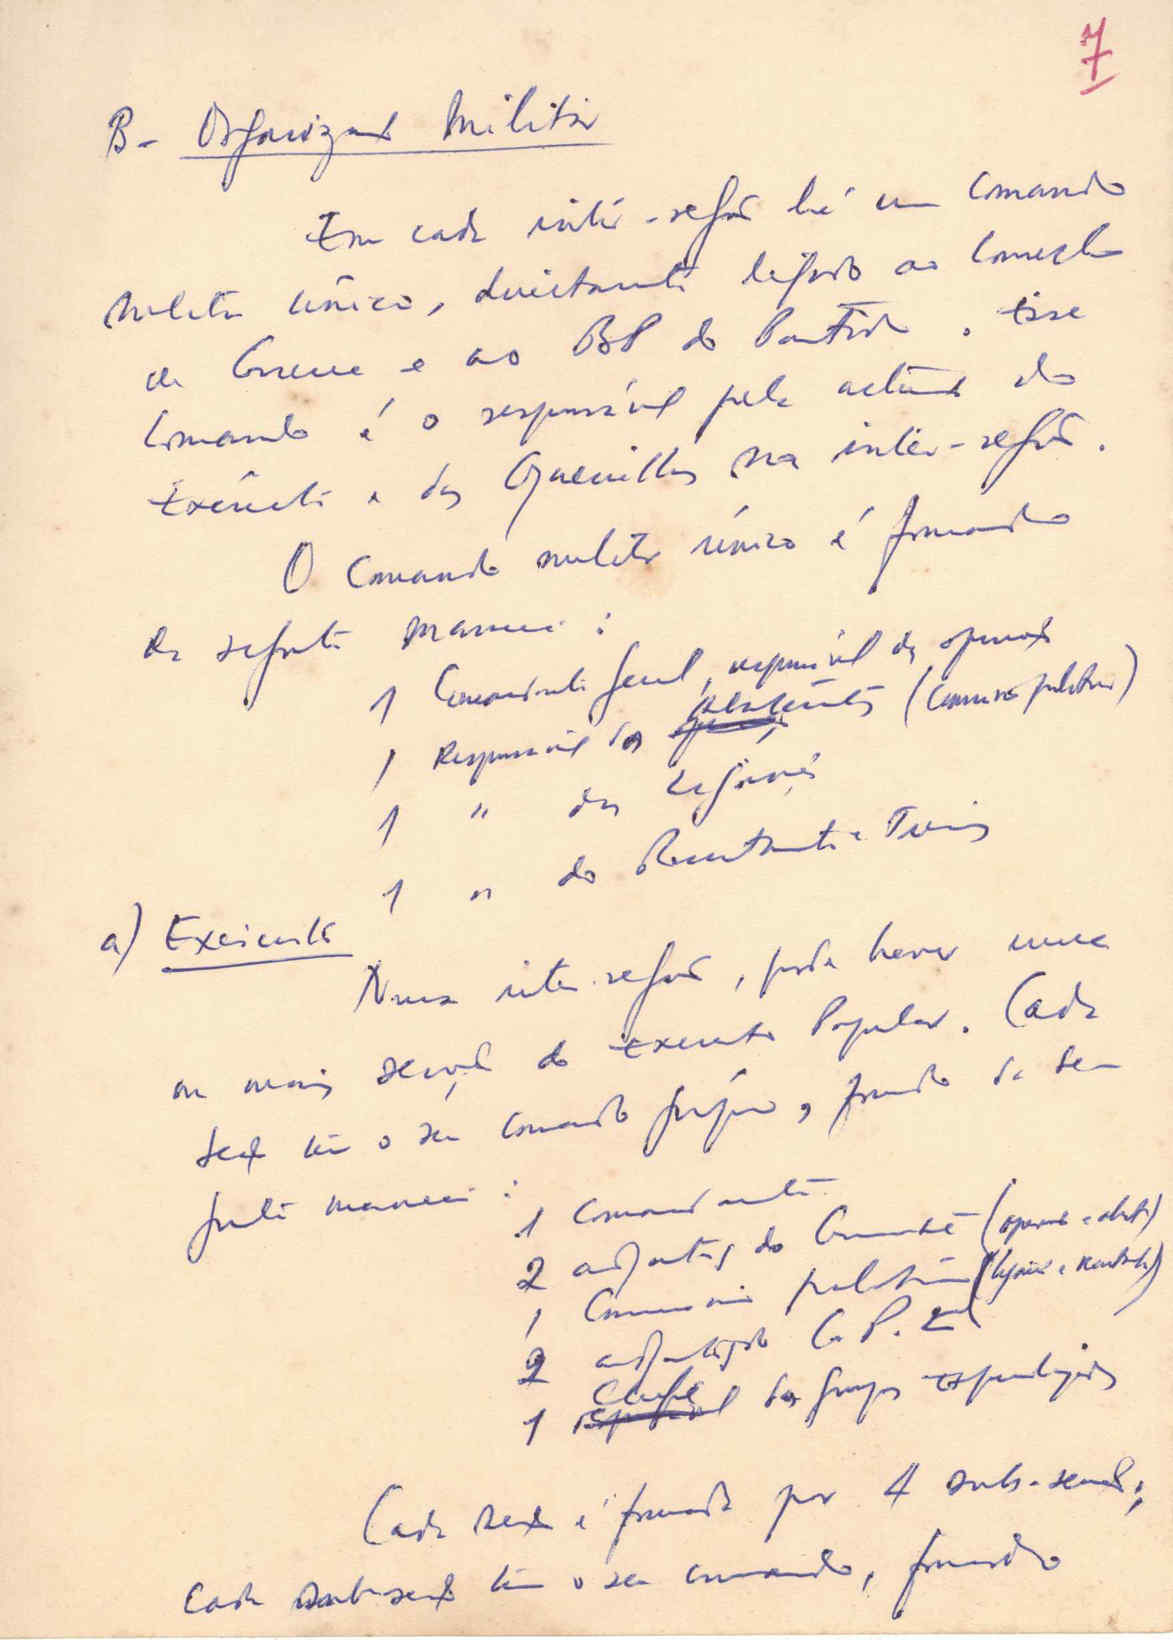 7
B- Organização Militar
Em cada inter-região há um Comando
Militar único, directamente ligado ao Conselho
de Guerra e ao BP do Partido. Esse
Comando é o responsável pela actuação do
Exército e das Guerrilhas na inter-região.
O Comando militar único é formado
da seguinte maneira:
1 Comandante geral, responsável das operações
1 Responsável dos (Comissário político)
1 " das
1 " do Recrutamento e Treino
a) Exército
Numa inter-região, pode haver uma
ou mais secções do Exército Popular. Cada
secção tem o seu comando próprio, formado da se-
guinte maneira:
1 Comandante
2 adjuntos do Comandante (operações e
1 Comissário político
2 adjuntos do C. P.
1 Chefe dos grupos especializados
Cada secção é formada por 4 sub-secções;
cada sub-secção tem o seu comando, formado